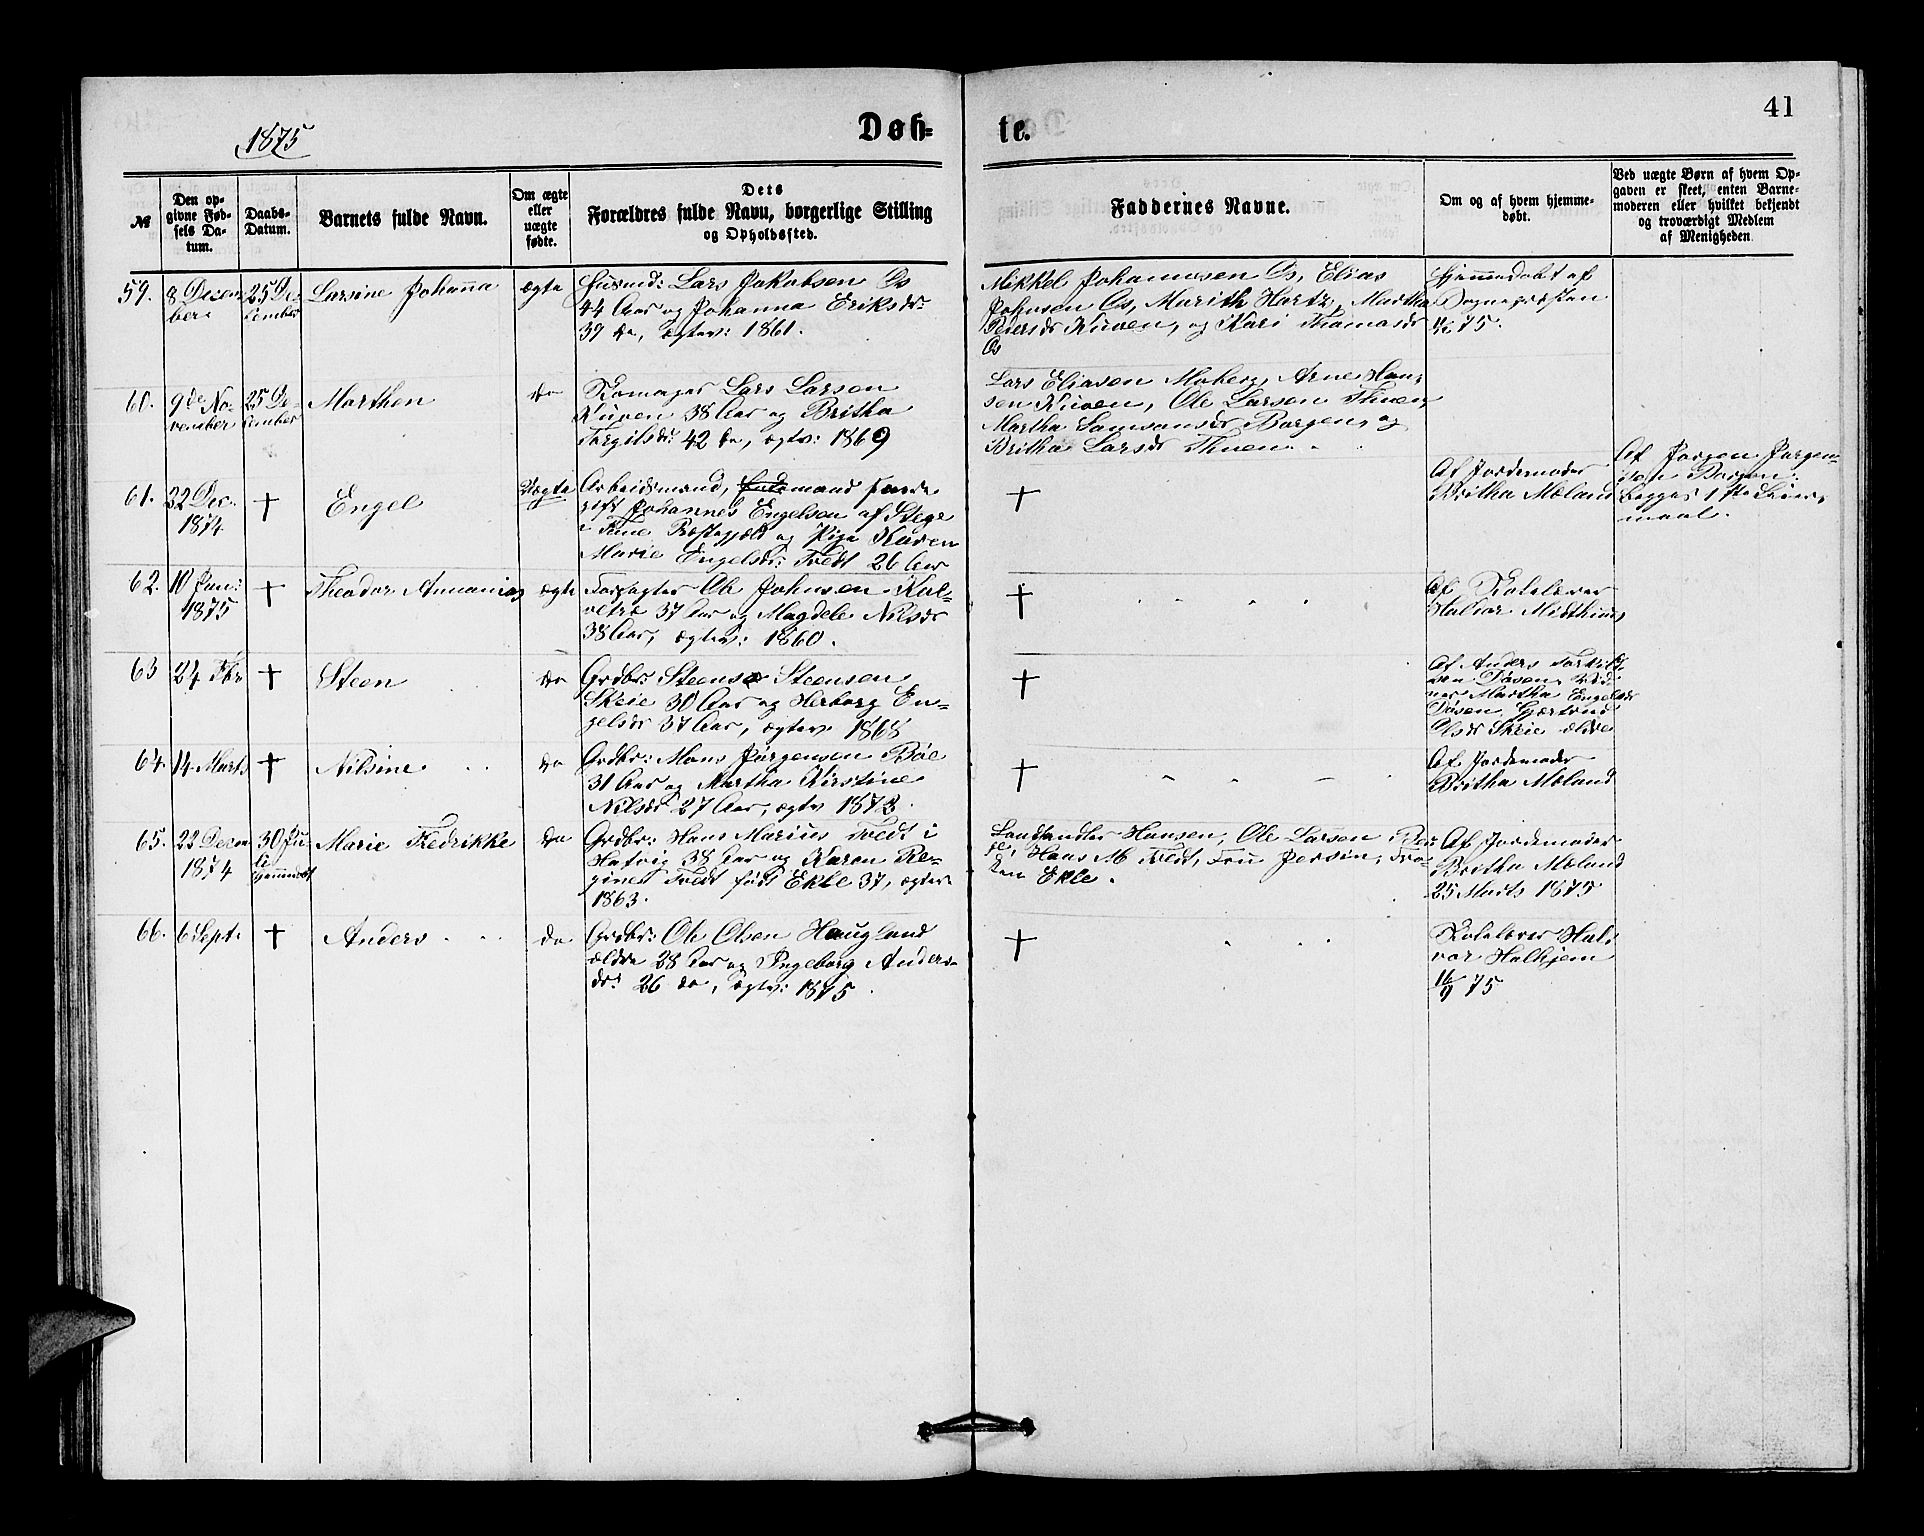 1875
Døb-
te.
41
№
Den op-
givne Fød-
sels Da-
tum.
Daabs-
Datum.
Barnets fulde Navn.
Om ægte
eller
uægte
fødte.
Dets
Forældres fulde Navn, borgerlige Stilling
og Opholdssted.
Faddernes Navne.
Om og af hvem hjemme-
døbt.
Ved uægte Børn af hvem Op-
gaven er skeet, enten Barne-
moderen eller hvilket bekjendt
og troværdigt Medlem
af Menigheden.
59.
8 Decem
ber
25 De
cember
Larsine Johanna
ægte
Husmd: Lars Jakobsen Os
44 Aar og Johanna Eriksdr:
39 do, ægtev: 1861.
Mikkel Johannesen Os, Elias
Johnsen Os, Marith Hartz, Martha
Peersdr Kuven, og Kari Thomasdr
Os
Hjemmedøbt af
Sognepræsten
75.
60.
9de No-
vember
25 De-
cember
Marthen
do
Lars Larsen
Kuven 38 Aar og Britha
Torgilsdr: 42 do, ægtv: 1869
Lars Eliasen Moberg, Arne Han-
sen Kuven, Ole Larsen Tuen,
Martha Samsonsdr Borgen, og
Britha Larsdr Tuen.
61.
22 Dec.
1874
†
Engel
Uægte
Arbeidsmand,
gift Johannes Engelsen af Stege
i Præstegjeld og Pige Karen
Marie Engelsdr: Tvedt 26 Aar
†
Af Jordemoder
Britha Moland
Af Jørgen Jørgen-
sen Borgen.
Begges 1ste Leier-
maal.
62.
10 Jan:
1875
†
Theodor Annanias
ægte
Forpagter Ole Johnsen Kol-
vetræ 37 Aar og Magdele Nilsdr
38 Aar, ægtev: 1860.
†
Af Skolelærer
Halvor Midthun
63
24 Fbr
†
Steen
do
Grdbr: Steen Steensen
Skeie 30 Aar og Herborg En-
gelsdr 37 Aar, ægtev 1868
†
Af Anders
Døsen,
Martha Engelsdr
Døsen, Gjertrud
Olsdr Skeie ældre
64.
14 Marts
†
Nilsine
do
Grdbr: Mons Jørgensen Bøe
31 Aar og Martha Kirstine
Nilsdr 27 Aar, ægtv 1873.
†
Af Jordemoder
Britha Moland
65.
22 Decem
1874
30 Ju-
li
hjemmedøbt
Marie Fredrikke
do
Grdbr: Hans Marius Tvedt i
Hatvig 38 Aar og Karen Re-
gine Tvedt født Ekle 37, ægtev
1863.
Landhandler Hansen, Ole Larsen
Hans M Tvedt, Fru Frø-
ken Ekle.
Af Jordemoder
Britha Moland
25 Marts 1875
66.
6 Sept.
†
Anders
do
Grdbr: Ole Olsen Haugland
ældre 28 Aar og Ingeborg Anders-
dr: 26 do, ægtv: 1875.
†
Skolelærer Hal-
vor Holhjem
16/9 75